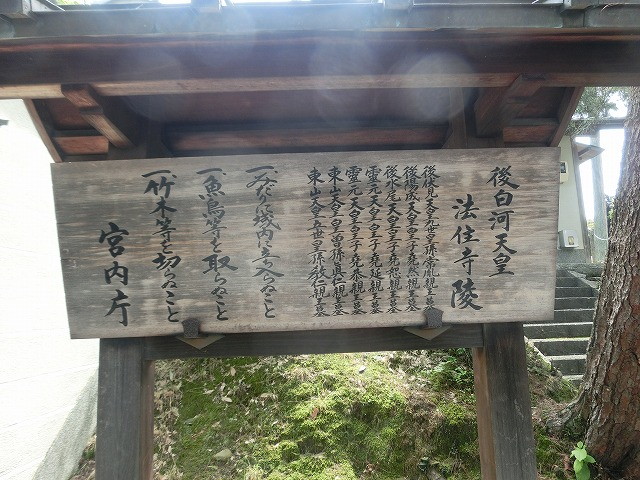 後白河天皇
法住寺陵
後伏見天皇九世皇孫尊胤親王墓
後陽成天皇皇子堯然親王墓
後水尾天皇皇子堯恕親王墓
霊元天皇皇子堯延親王墓
霊元天皇皇子堯恭親王墓
東山天皇皇曾孫眞仁親王墓
東山天皇五世皇孫敎仁親王墓
一、みだりに域内に立ち入らぬこと
一、魚鳥等を取らぬこと
一、竹木等を切らぬこと
宮内庁